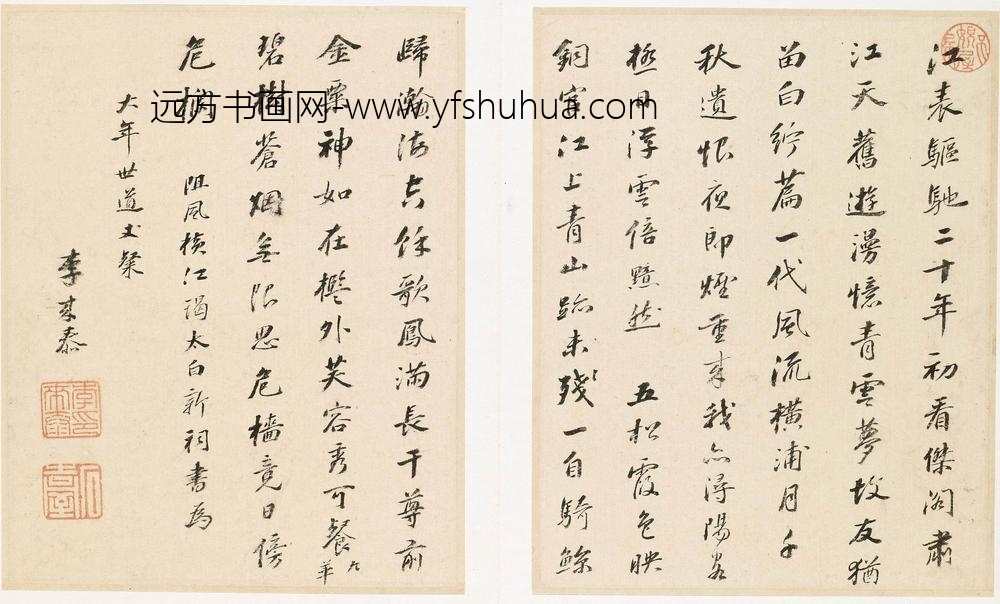 江表驅馳二十年初看傑閣肅
江天舊遊漫憶青雲夢故友猶
留白紵篇一代風流橫浦月千
秋遺恨夜郎煙重来我亦潯陽客
極目浮雲倍黯然 五松霞色映
銅官江上青山跡未殘一自騎鯨
歸瀚海方休歌鳳滿長干尊前
金粟神如在檻外芙容秀可餐 九華
碧樹蒼烟無限思危檣竟日傍
危欄 阻風橫江謁太白新祠書為
大年世道丈粲
李来泰
远方书画网-www.yfshuhua.com